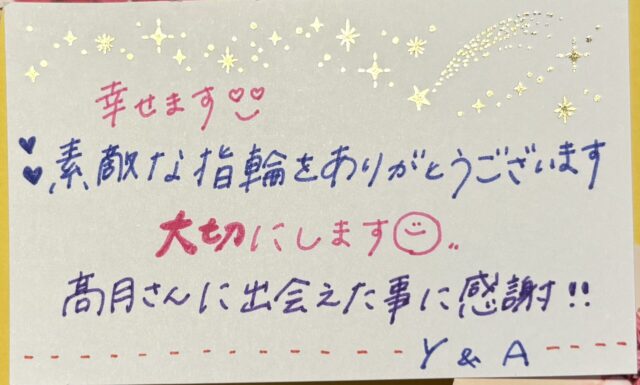 幸せます
素敵な指輪をありがとうございます
大切にします
髙月さんに出会えた事に感謝!!
Y & A